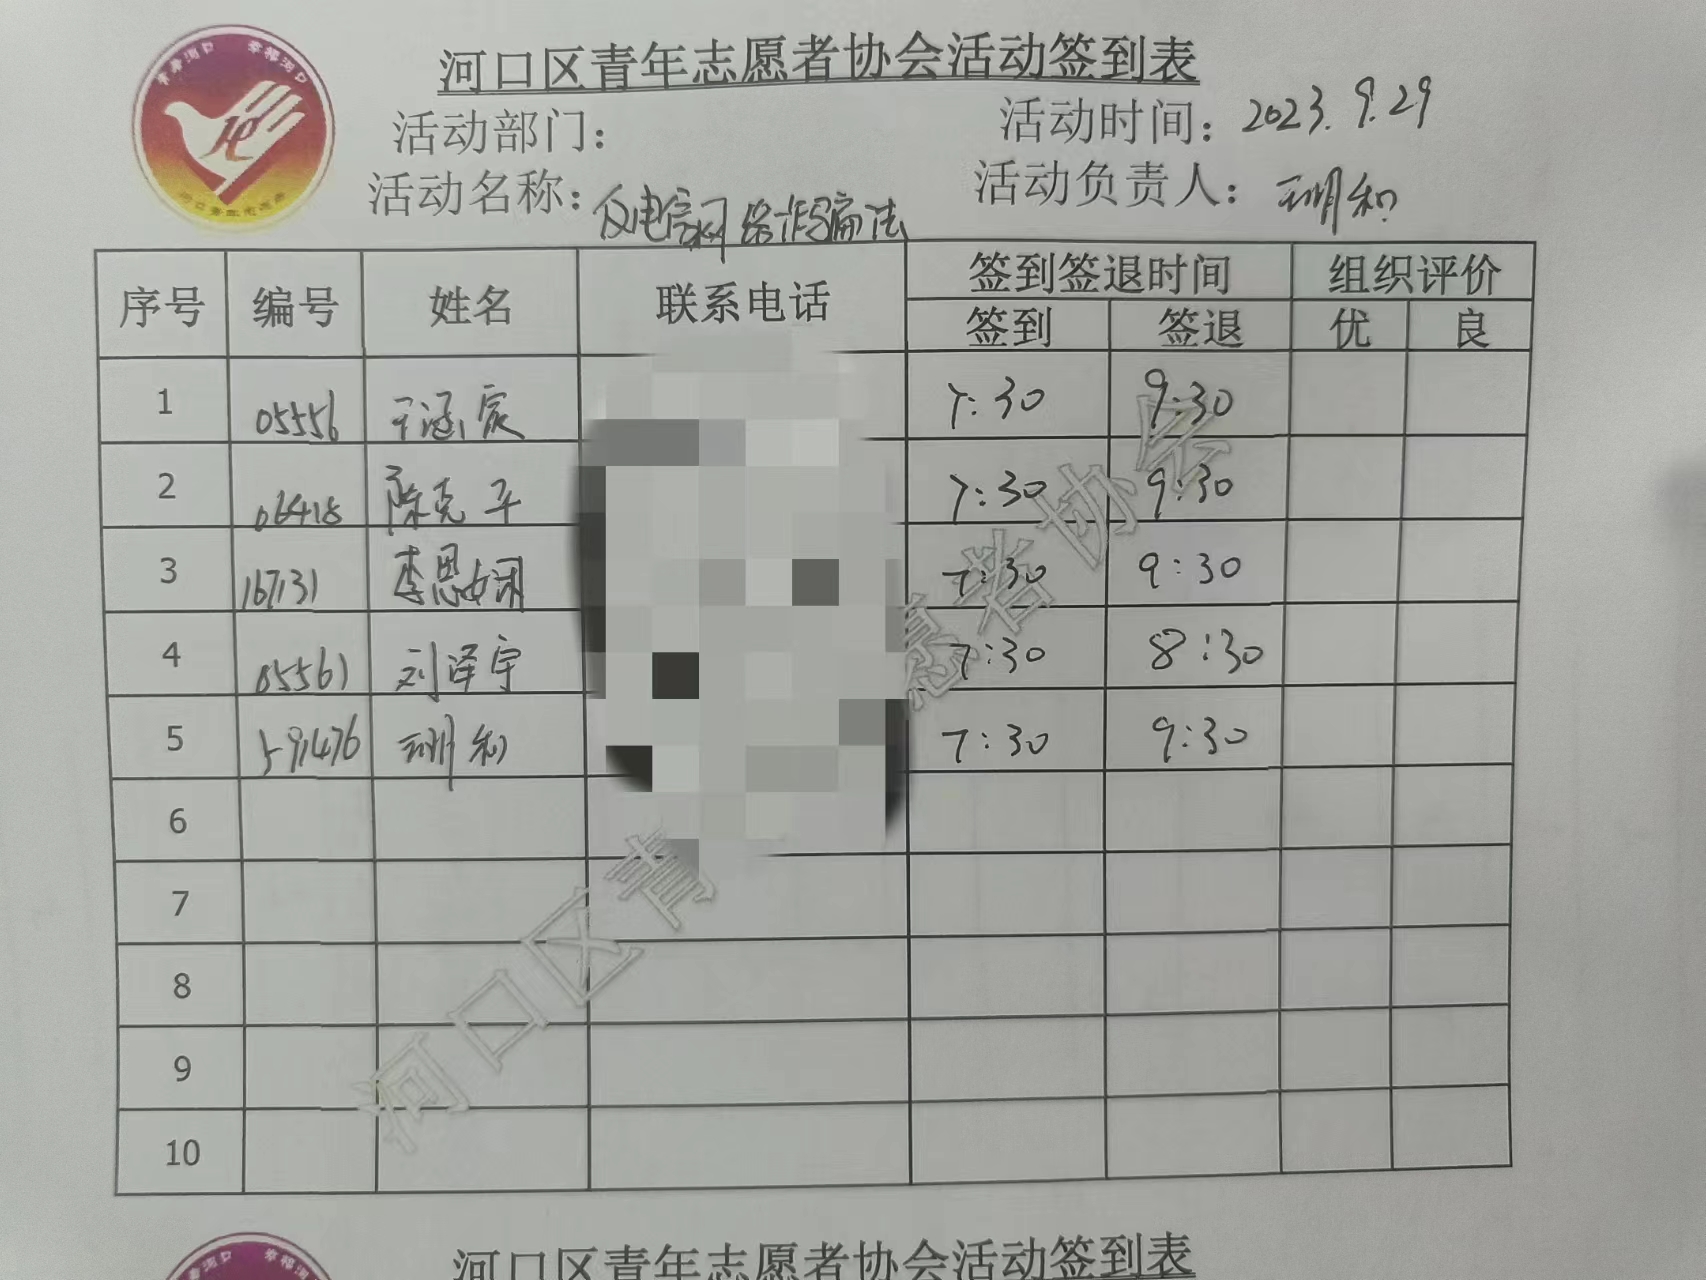 青春河口 幸福河口
河口区青年志愿者协会活动签到表
活动部门：
活动时间：2023.9.29
活动名称：反电信网络诈骗法
活动负责人：
序号 编号 姓名 联系电话 签到签退时间 组织评价
签到 签退 优 良
1 05556 7:30 9:30
2 06418 陈克平 7:30 9:30
3 167131 李思娴 7:30 9:30
4 05561 刘泽宇 7:30 8:30
5 7:30 9:30
6
7
8
9
10
河口区青 愿者协会
河口区青年志愿者协会活动签到表